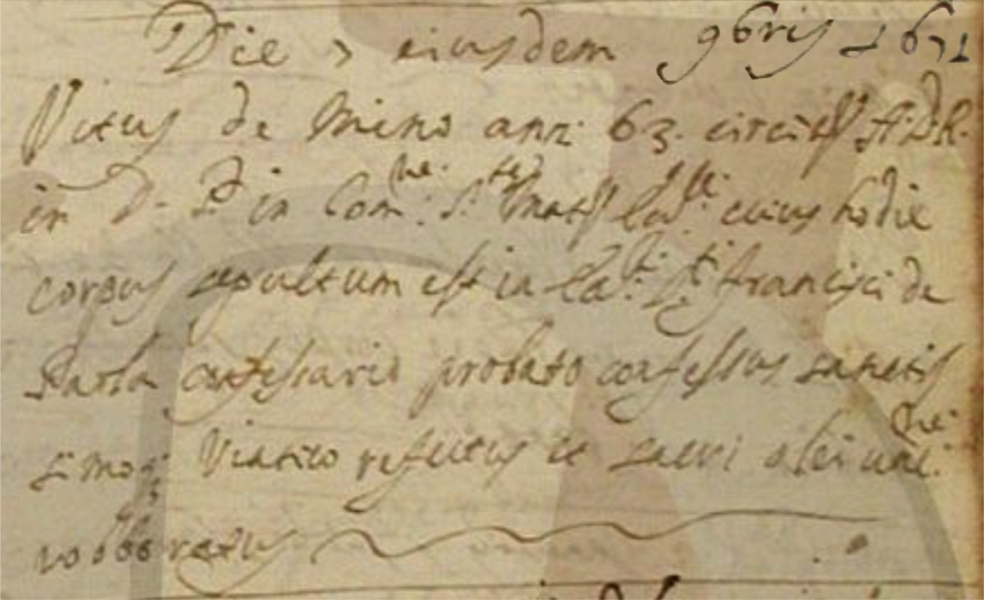 Die 7 eiusdem 9bris 1671
Vitus de Mino ann: 63. circiter A.D.R.
in D. P. in Com:ne S.te Matris Ecc:e cuius hodie
corpus sepultum est in Ecc: S.ti francisci de
Paola confessario probato confessus sanctis
simoq; Viatico refectus et sacri olei unc:ne
roboratus